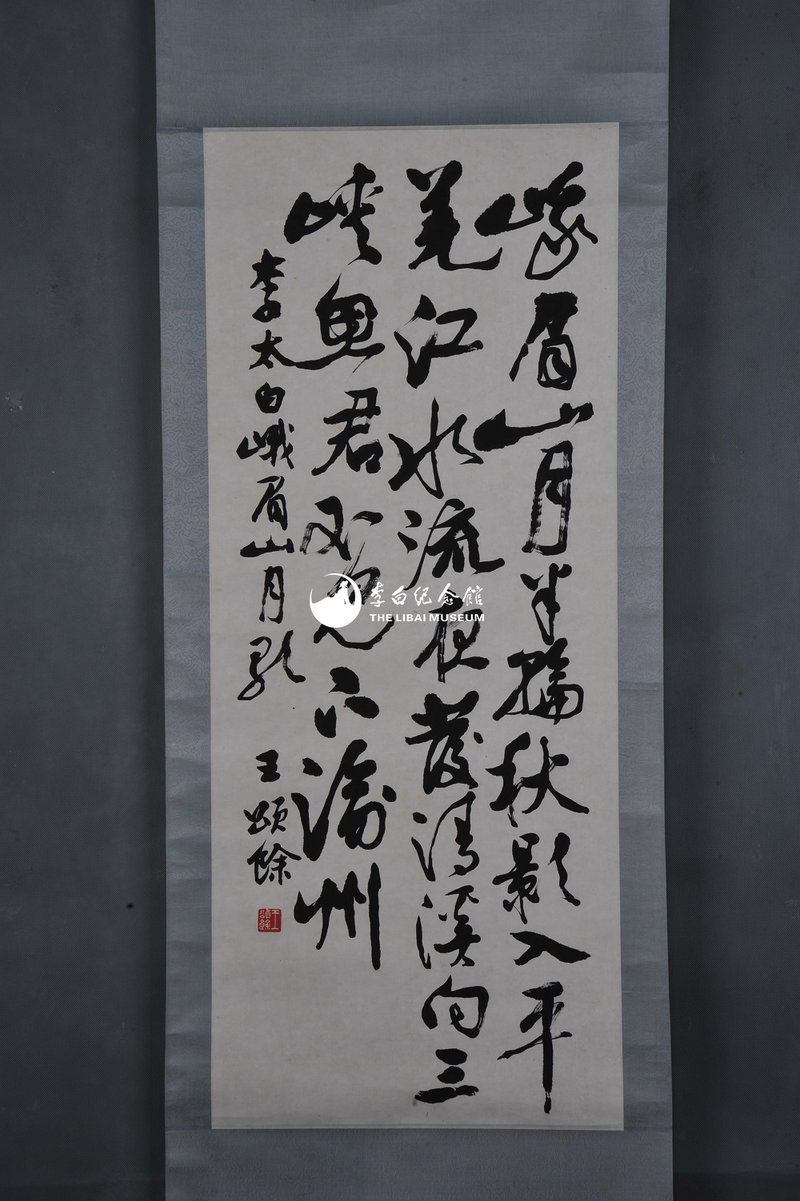 峨眉山月半輪秋影入平
羌江水流夜發清溪向三
峡思君不見下渝州
李太白峨眉山月歌 王頌餘
王頌餘
李白纪念館
THE LIBAI MUSEUM